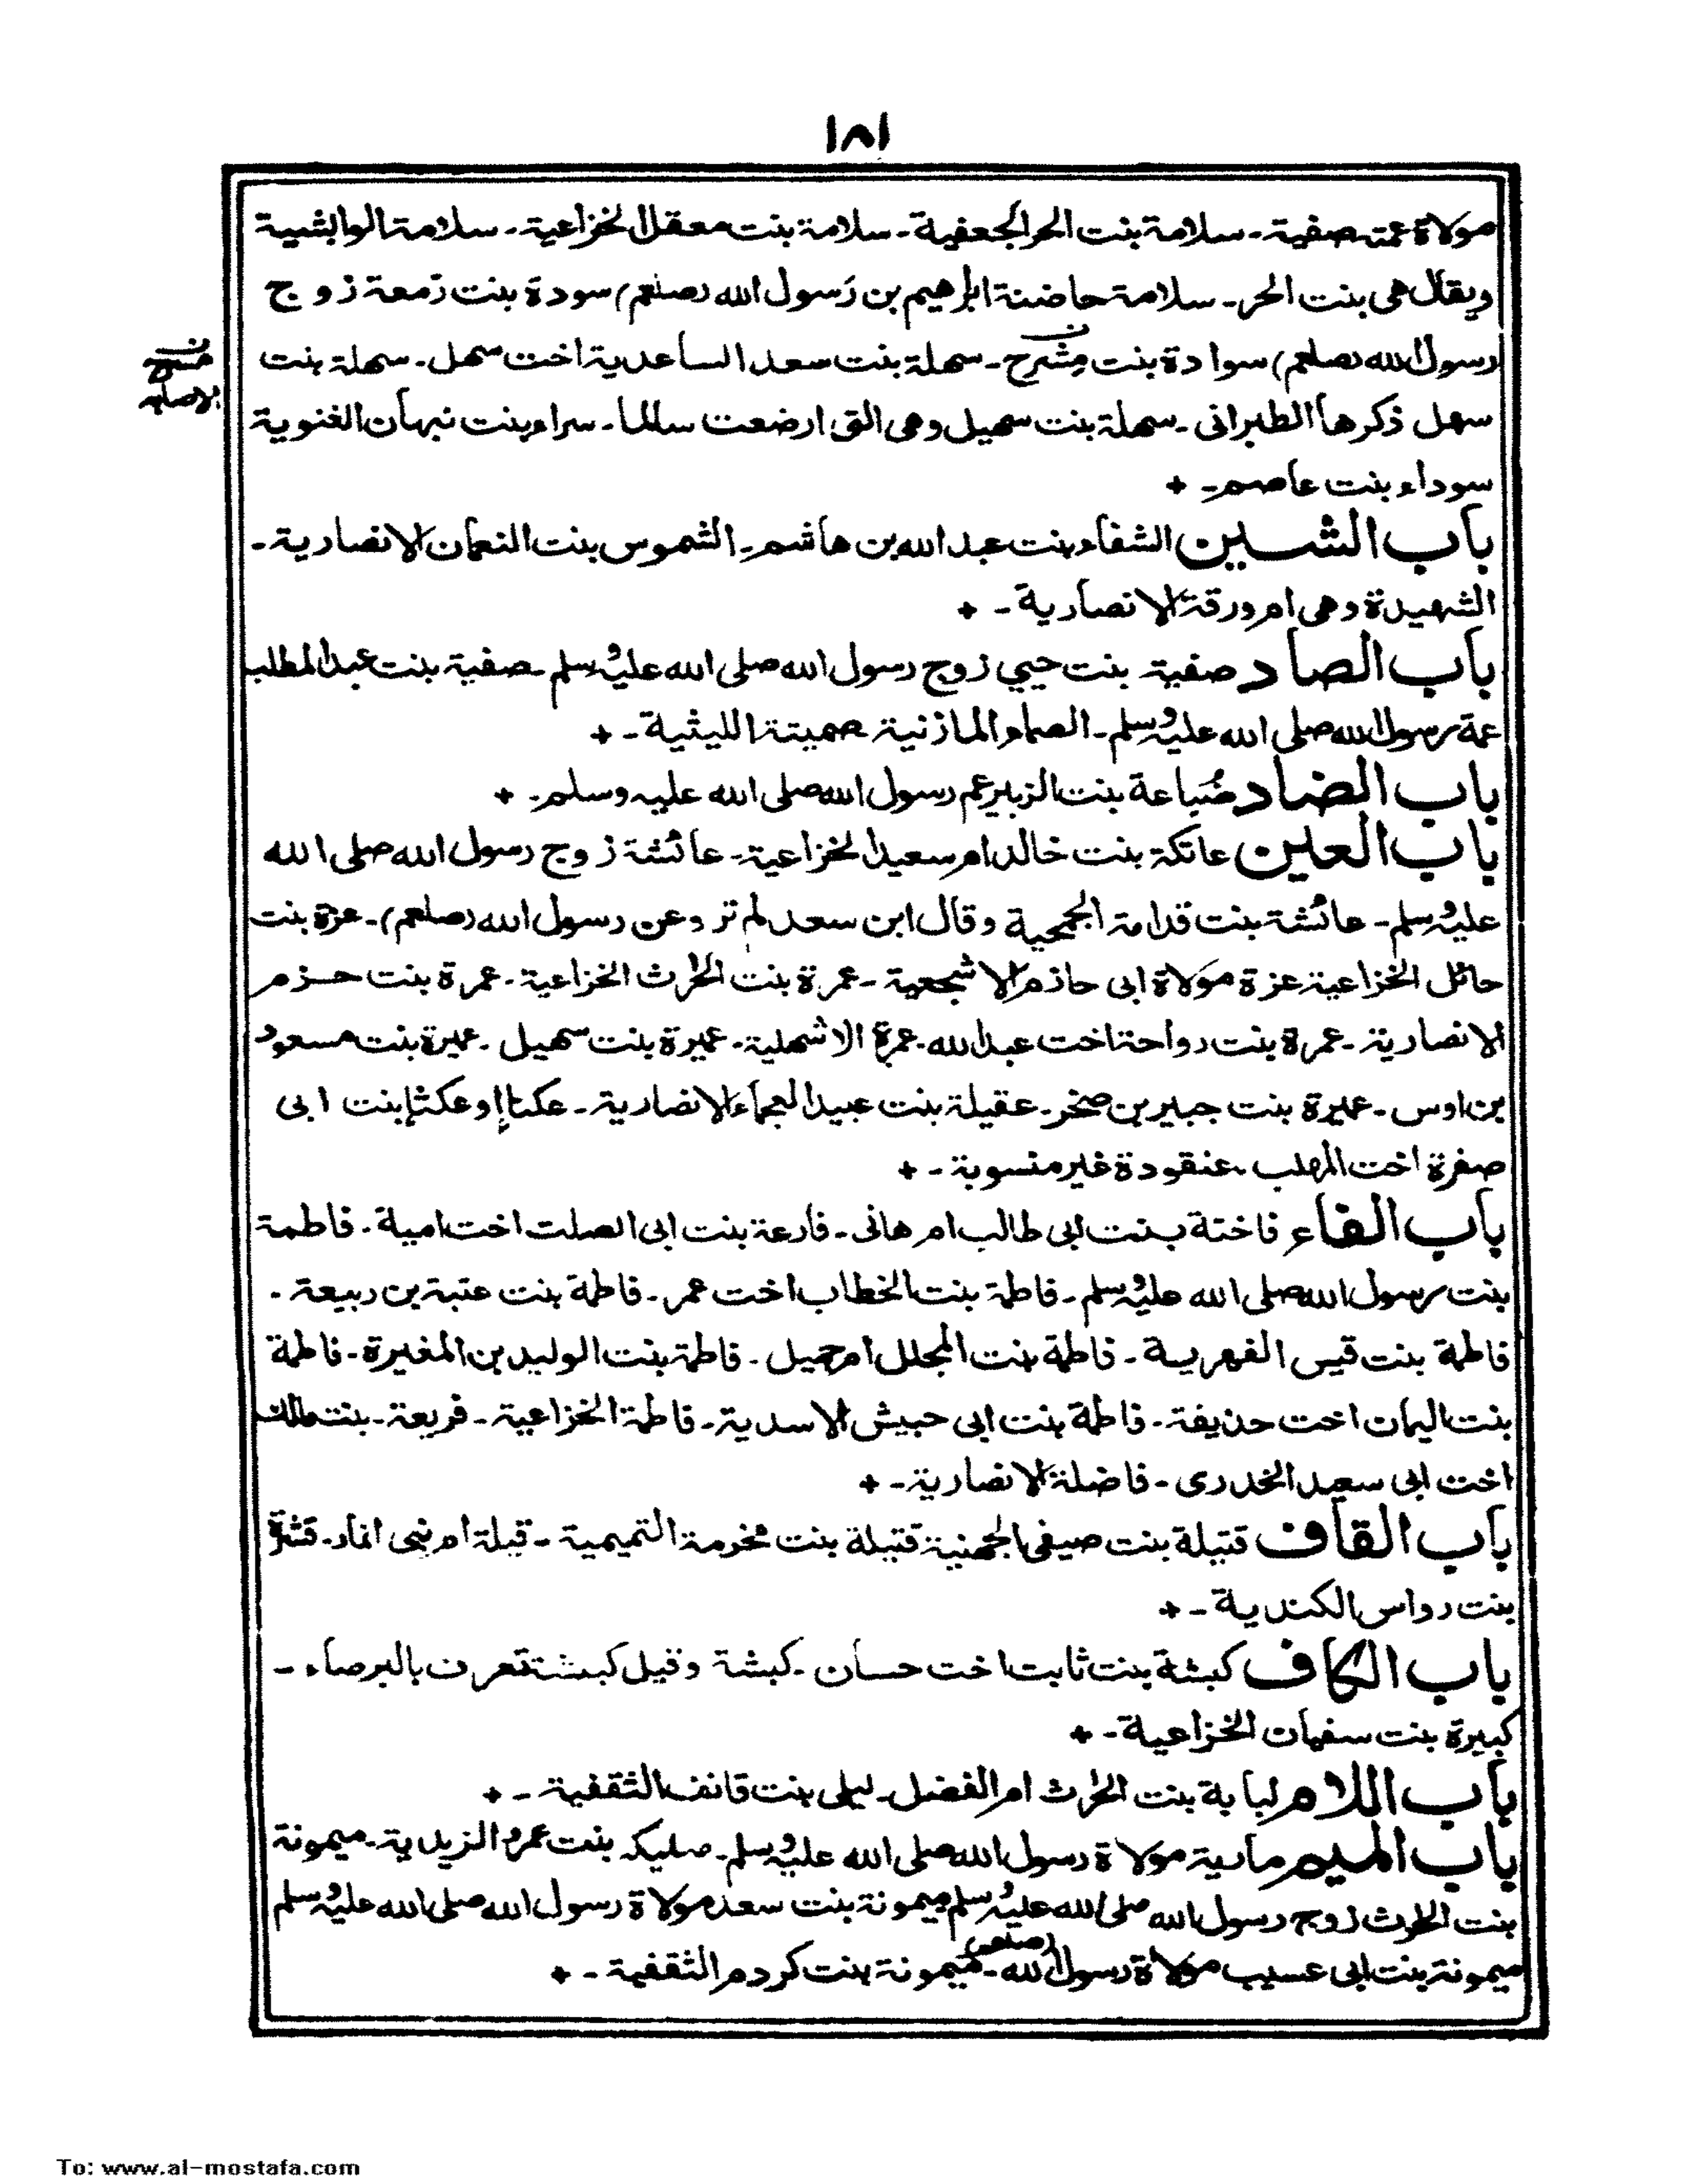 ١٨١
مولاة عمته صفية ـ سلامة بنت الحر الجعفية ـ سلامة بنت معقل الخزاعية ـ سلامة الوابشية
ويقال هى بنت الحر ـ سلامة حاضنة ابراهيم بن رسول الله (صلعم) سودة بنت زمعة زوج
رسول الله (صلعم) سوادة بنت مشرح ـ سهلة بنت سعد الساعدية اخت سهل ـ سهلة بنت
ن مسرح
الاصابه
سهل ذكرها الطبرانى ـ سهلة بنت سهيل وهى التى ارضعت سالما ـ سراء بنت نبهان الغنوية
سوداء بنت عاصم ـ +
باب الشين الشفاء بنت عبد الله بن هاشم ـ الشموس بنت النعمان الانصارية ـ
الشهيدة وهى ام ورقة الانصارية ـ +
باب الصاد صفية بنت حيي زوج رسول الله صلى الله عليه وسلم ـ صفية بنت عبد المطلب
عمة رسول الله صلى الله عليه وسلم ـ الصماء المازنية صميتة الليثية ـ +
باب الضاد ضُباعة بنت الزبير عم رسول الله صلى الله عليه وسلم ـ +
باب العين عاتكة بنت خالد ام سعيد الخزاعية ـ عائشة زوج رسول الله صلى الله
عليه وسلم ـ عائشة بنت قدامة الجمحية وقال ابن سعد لم ترو عن رسول الله (صلعم) ـ عزة بنت
حائل الخزاعية عزة مولاة ابى حازم الاشجعية ـ عمرة بنت الحٰرث الخزاعية ـ عمرة بنت حزم
الانصارية ـ عمرة بنت رواحة اخت عبد الله ـ عمرة الاشهلية ـ عميرة بنت سهيل ـ عميرة بنت مسعود
بن اوس ـ عميرة بنت جبير بن صخر ـ عقيلة بنت عبيد العجماء الانصارية ـ عكناإ او عكثإ بنت ابى
صفرة اخت المهلب ـ عنقودة غير منسوبة ـ +
باب الفاء فاختة بنت ابى طالب ام هانى ـ فارعة بنت ابى الصلت اخت امية ـ فاطمة
بنت رسول الله صلى الله عليه وسلم ـ فاطمة بنت الخطاب اخت عمر ـ فاطمة بنت عتبة بن ربيعة ـ
فاطمة بنت قيس الفهرية ـ فاطمة بنت المجلل ام جميل ـ فاطمة بنت الوليد بن المغيرة ـ فاطمة
بنت اليمان اخت حذيفة ـ فاطمة بنت ابى حبيش الاسدية ـ فاطمة الخزاعية ـ فريعة ـ بنت مالك
اخت ابى سعيد الخدرى ـ فاضلة الانصارية ـ +
باب القاف قتيلة بنت صيفى الجهنية قتيلة بنت مخرمة التميمية ـ قيلة ام بنى انمار ـ قثرة
بنت رواس الكندية ـ +
باب الكاف كبشة بنت ثابت اخت حسان ـ كبشة وقيل كبشة تعرف بالبرصاء ـ
كبيرة بنت سفيان الخزاعية ـ +
باب اللام لبابة بنت الحٰرث ام الفضل ـ ليلى بنت قانف الثقفية ـ +
باب الميم مارية مولاة رسول الله صلى الله عليه وسلم ـ مليكه بنت عمرو الزيدية ـ ميمونة
بنت الحٰرث زوج رسول الله صلى الله عليه وسلم ميمونة بنت سعد مولاة رسول الله صلى الله عليه وسلم
ميمونة بنت ابى عسيب مولاة رسول الله (صلعم) ـ ميمونة بنت كردم الثقفية ـ +
To: www.al-mostafa.com